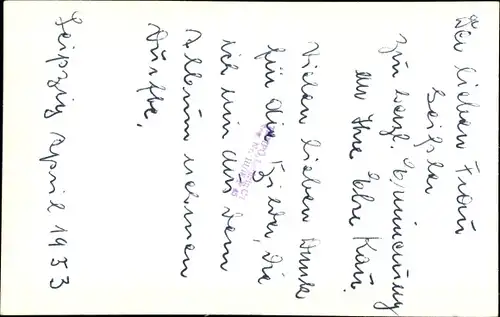 Der lieben Frau
Geißler
zur herzl. Erinnerung
an Ihre Ehe Kau.
Vielen lieben Dank
für die Bilder, die
ich mir aus dem
Album nehmen
durfte.
Leipzig April 1953